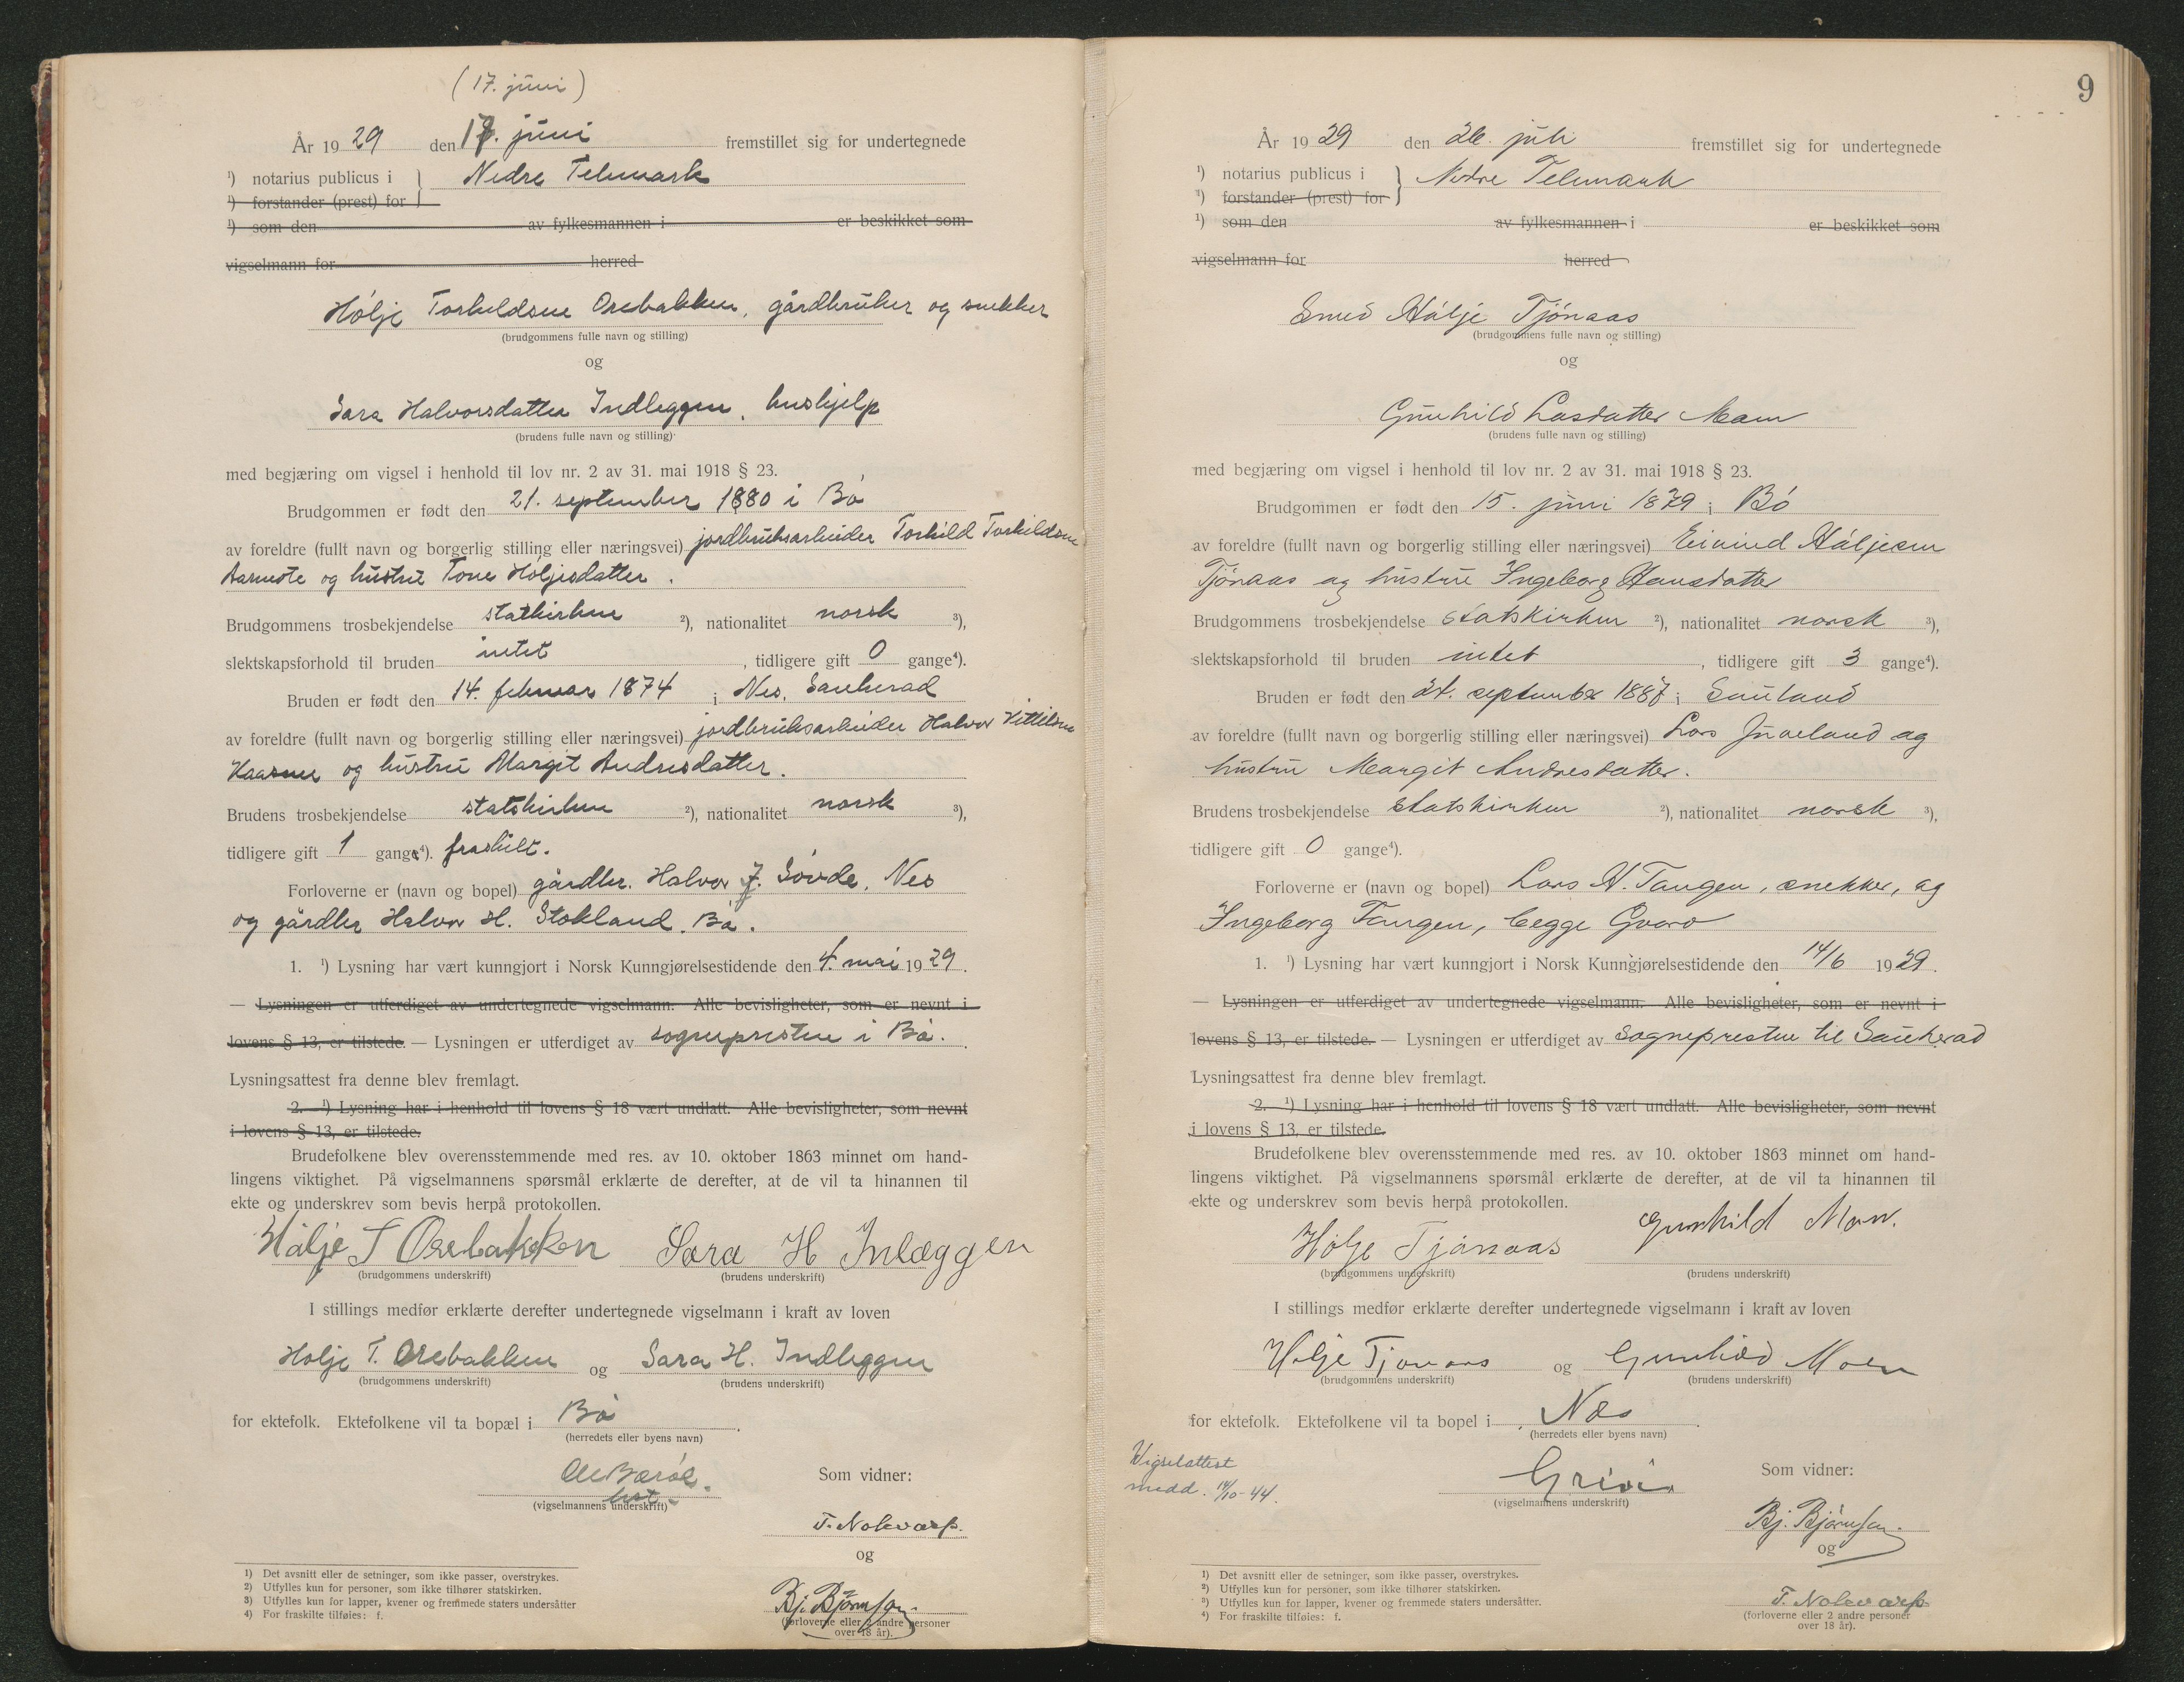 (17. juni)
År 1929 den 17. juni fremstillet sig for undertegnede
¹) notarius publicus i } Nedre Telemark
¹) forstander (prest) for
¹) som den av fylkesmannen i er beskikket som
vigselmann for herred
Hølje Torkildsen Orebakken, gårdbruker og snekker
(brudgommens fulle navn og stilling)
og
Sara Halvorsdatter Indleggen, hushjelp
(brudens fulle navn og stilling)
med begjæring om vigsel i henhold til lov nr. 2 av 31. mai 1918 § 23.
Brudgommen er født den 21. september 1880 i Bø
av foreldre (fullt navn og borgerlig stilling eller næringsvei) jordbruksarbeider Torkild Torkildsen
og hustru Tone Høljesdatter.
Brudgommens trosbekjendelse statskirken ²), nationalitet norsk ³),
slektskapsforhold til bruden intet, tidligere gift 0 gange⁴).
Bruden er født den 14. februar 1874 i Nes, Sauherad
av foreldre (fullt navn og borgerlig stilling eller næringsvei) jordbruksarbeider Halvor Kittilsen
Kaasene og hustru Margit Andresdatter.
Brudens trosbekjendelse statskirken ²), nationalitet norsk ³),
tidligere gift 1 gange⁴). fraskilt.
Forloverne er (navn og bopel) gårdbr. Halvor J. Søvde, Nes
og gårdbr Halvor H. Stokland, Bø.
1. ¹) Lysning har vært kunngjort i Norsk Kunngjørelsestidende den 4. mai 1929.
— Lysningen er utferdiget av undertegnede vigselmann. Alle bevisligheter, som er nevnt i
lovens § 13, er tilstede. — Lysningen er utferdiget av sognepresten i Bø.
Lysningsattest fra denne blev fremlagt.
2. ¹) Lysning har i henhold til lovens § 18 vært undlatt. Alle bevisligheter, som nevnt
i lovens § 13, er tilstede.
Brudefolkene blev overensstemmende med res. av 10. oktober 1863 minnet om hand-
lingens viktighet. På vigselmannens spørsmål erklærte de derefter, at de vil ta hinannen til
ekte og underskrev som bevis herpå protokollen.
Hølje T Orebakken Sara H Inlæggen
(brudgommens underskrift) (brudens underskrift)
I stillings medfør erklærte derefter undertegnede vigselmann i kraft av loven
Holje T. Orebakken og Sara H. Indleggen
(brudgommens underskrift) (brudens underskrift)
for ektefolk. Ektefolkene vil ta bopæl i Bø.
(herredets eller byens navn)
Som vidner:
(vigselmannens underskrift)
T. Nolevarp.
og
Bj. Bjørnson
(forloverne eller 2 andre personer
over 18 år).
1) Det avsnitt eller de setninger, som ikke passer, overstrykes.
2) Utfylles kun for personer, som ikke tilhører statskirken.
3) Utfylles kun for lapper, kvener og fremmede staters undersåtter
4) For fraskilte tilføies: f.
9
År 1929 den 26. juli fremstillet sig for undertegnede
¹) notarius publicus i } Nedre Telemark
¹) forstander (prest) for
¹) som den av fylkesmannen i er beskikket som
vigselmann for herred
Smed Hølje Tjønaas
(brudgommens fulle navn og stilling)
og
Gunhild Larsdatter Moen
(brudens fulle navn og stilling)
med begjæring om vigsel i henhold til lov nr. 2 av 31. mai 1918 § 23.
Brudgommen er født den 15. juni 1879 i Bø
av foreldre (fullt navn og borgerlig stilling eller næringsvei) Eivind Høljesen
Tjønaas og hustru Ingeborg Hansdatter
Brudgommens trosbekjendelse statskirken ²), nationalitet norsk ³),
slektskapsforhold til bruden intet, tidligere gift 3 gange⁴).
Bruden er født den 24. september 1887 i Sauland
av foreldre (fullt navn og borgerlig stilling eller næringsvei) Lars og
hustru Margit Andresdatter.
Brudens trosbekjendelse statskirken ²), nationalitet norsk ³),
tidligere gift 0 gange⁴).
Forloverne er (navn og bopel) Lars H. Tangen, snekker, og
Ingeborg Tangen, begge Gvarv
1. ¹) Lysning har vært kunngjort i Norsk Kunngjørelsestidende den 14/6 1929.
— Lysningen er utferdiget av undertegnede vigselmann. Alle bevisligheter, som er nevnt i
lovens § 13, er tilstede. — Lysningen er utferdiget av sognepresten til Sauherad
Lysningsattest fra denne blev fremlagt.
2. ¹) Lysning har i henhold til lovens § 18 vært undlatt. Alle bevisligheter, som nevnt
i lovens § 13, er tilstede.
Brudefolkene blev overensstemmende med res. av 10. oktober 1863 minnet om hand-
lingens viktighet. På vigselmannens spørsmål erklærte de derefter, at de vil ta hinannen til
ekte og underskrev som bevis herpå protokollen.
Hølje Tjønaas Gunhild Moen.
(brudgommens underskrift) (brudens underskrift)
I stillings medfør erklærte derefter undertegnede vigselmann i kraft av loven
Hølje Tjønaas og Gunhild Moen
(brudgommens underskrift) (brudens underskrift)
for ektefolk. Ektefolkene vil ta bopel i Nes.
(herredets eller byens navn)
Vigselattest
medd. 14/10-44.
Som vidner:
(vigselmannens underskrift)
Bj. Bjørnson.
og
T. Nolevarp
(forloverne eller 2 andre personer
over 18 år).
¹) Det avsnitt eller de setninger, som ikke passer, overstrykes.
²) Utfylles kun for personer, som ikke tilhører statskirken.
³) Utfylles kun for lapper, kvener og fremmede staters undersåtter.
⁴) For fraskilte tilføies: f.